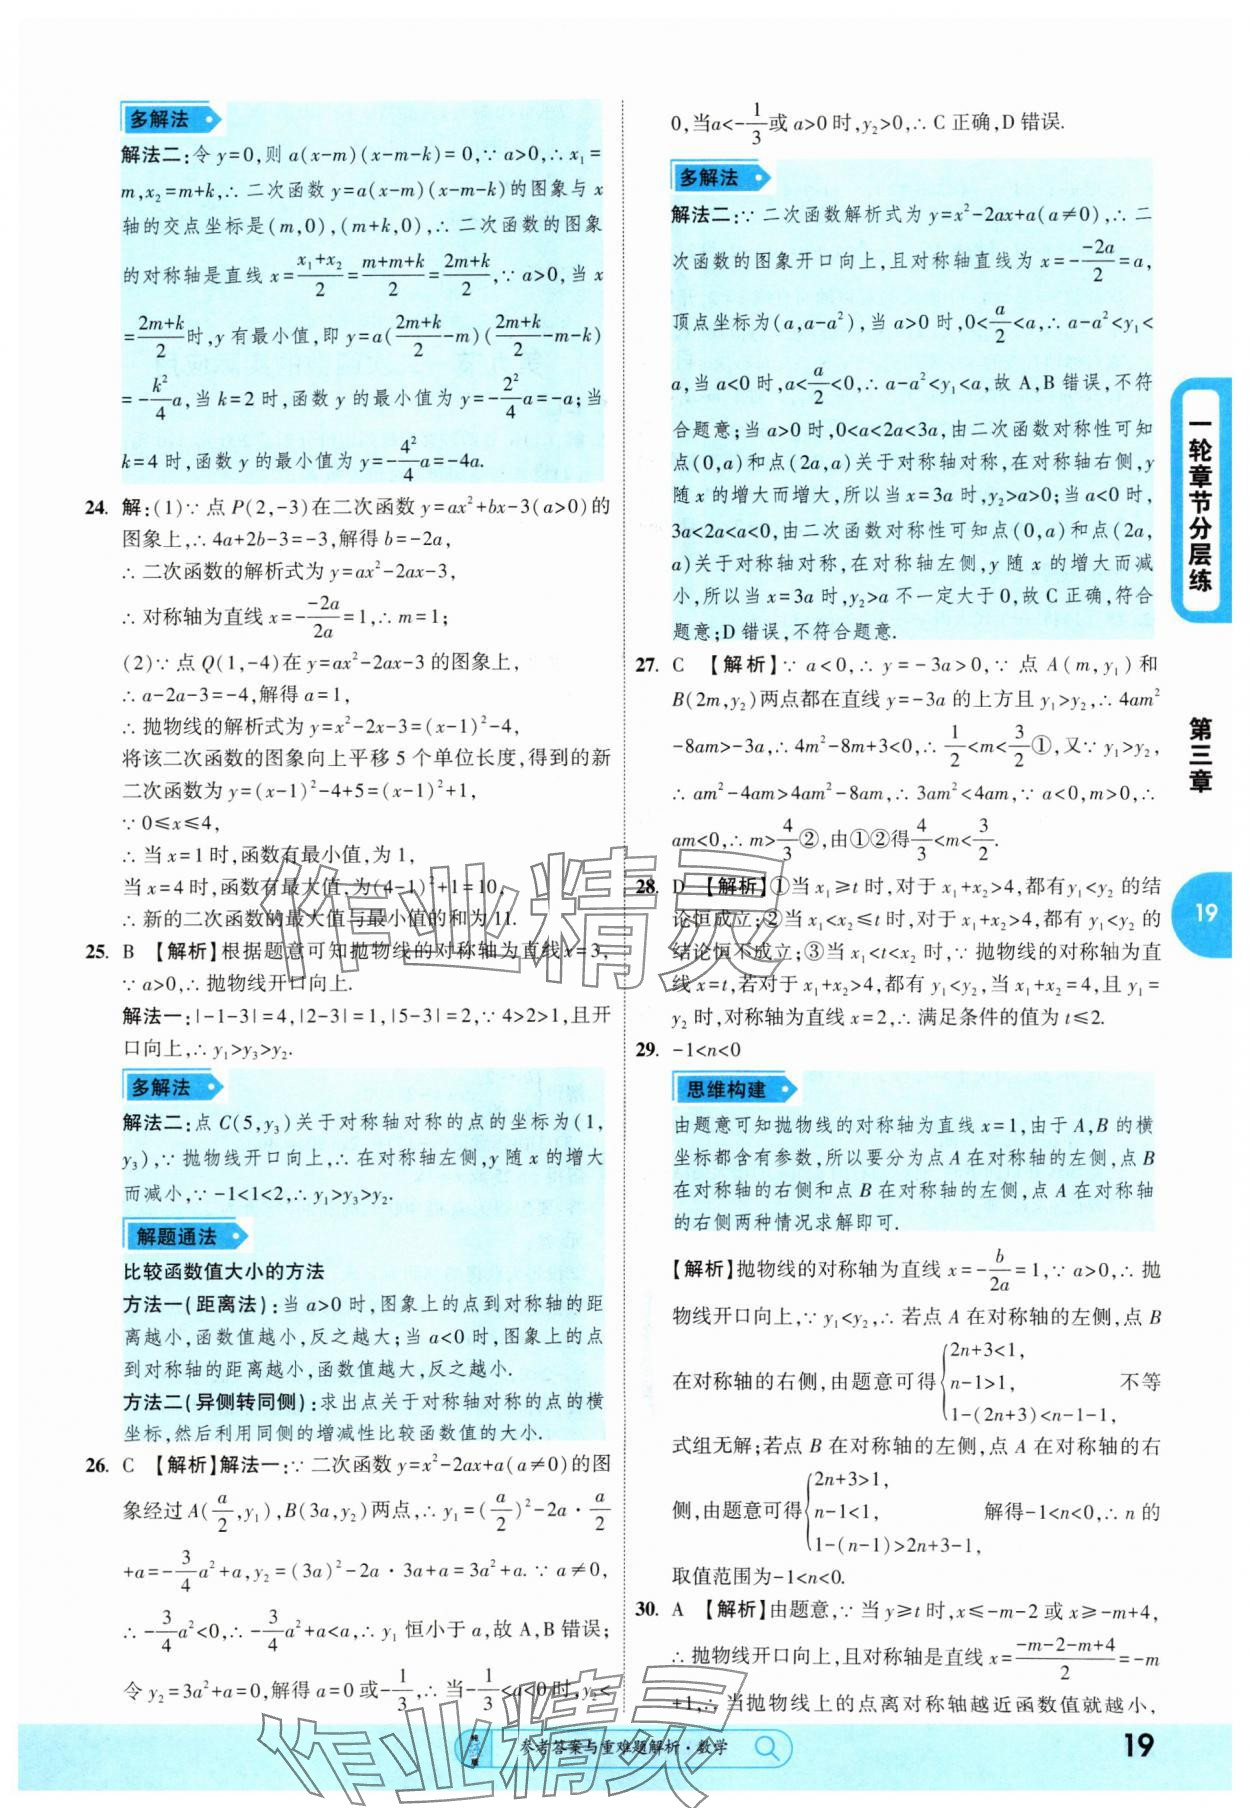 多解法
解法二:令 y=0,则 a(x-m)(x-m-k)=0,∵ a>0,∴ x₁=
m,x₂=m+k,∴ 二次函数 y=a(x-m)(x-m-k)的图象与 x
轴的交点坐标是(m,0),(m+k,0),∴ 二次函数的图象
的对称轴是直线 x=(x₁+x₂)/2=(m+m+k)/2=(2m+k)/2,∵ a>0,当 x
=(2m+k)/2时,y 有最小值,即 y=a((2m+k)/2-m)((2m+k)/2-m-k)
=-k²/4a,当 k=2时,函数 y 的最小值为 y=-2²/4a=-a;当
k=4 时,函数 y 的最小值为 y=-4²/4a=-4a.
24. 解:(1)∵ 点 P(2,-3)在二次函数 y=ax²+bx-3(a>0)的
图象上,∴ 4a+2b-3=-3,解得 b=-2a,
∴ 二次函数的解析式为 y=ax²-2ax-3,
∴ 对称轴为直线 x=-(-2a)/2a=1,∴ m=1;
(2)∵ 点 Q(1,-4)在 y=ax²-2ax-3 的图象上,
∴ a-2a-3=-4,解得 a=1,
∴ 抛物线的解析式为 y=x²-2x-3=(x-1)²-4,
将该二次函数的图象向上平移 5 个单位长度,得到的新
二次函数为 y=(x-1)²-4+5=(x-1)²+1,
∵ 0≤x≤4,
∴ 当 x=1 时,函数有最小值,为 1,
当 x=4 时,函数有最大值,为(4-1)²+1=10,
∴ 新的二次函数的最大值与最小值的和为 11.
25. B 【解析】根据题意可知抛物线的对称轴为直线 x=3,
∵ a>0,∴ 抛物线开口向上.
解法一:|-1-3|=4,|2-3|=1,|5-3|=2,∵ 4>2>1,且开
口向上,∴ y₁>y₃>y₂.
多解法
解法二:点 C(5,y₃)关于对称轴对称的点的坐标为(1,
y₃),∵ 抛物线开口向上,∴ 在对称轴左侧,y 随 x 的增大
而减小,∵ -1<1<2,∴ y₁>y₃>y₂.
解题通法
比较函数值大小的方法
方法一(距离法):当 a>0 时,图象上的点到对称轴的距
离越小,函数值越小,反之越大;当 a<0 时,图象上的点
到对称轴的距离越小,函数值越大,反之越小.
方法二(异侧转同侧):求出点关于对称轴对称的点的横
坐标,然后利用同侧的增减性比较函数值的大小.
26. C 【解析】解法一:∵ 二次函数 y=x²-2ax+a(a≠0)的图
象经过 A(a/2,y₁),B(3a,y₂)两点,∴ y₁=(a/2)²-2a·a/2
+a=-3/4a²+a,y₂=(3a)²-2a·3a+a=3a²+a.∵ a≠0,
∴ -3/4a²<0,∴ -3/4a²+a<a,∴ y₁ 恒小于 a,故 A,B 错误;
令 y₂=3a²+a=0,解得 a=0或-1/3,∴ 当-1/3<a<0时,y₂<
0,当a<-1/3或 a>0 时,y₂>0,∴ C 正确,D 错误.
多解法
解法二:∵ 二次函数解析式为 y=x²-2ax+a(a≠0),∴ 二
次函数的图象开口向上,且对称轴直线为 x=-(-2a)/2=a,
顶点坐标为(a,a-a²),当 a>0 时,0<a/2<a,∴ a-a²<y₁<
a,当 a<0 时,a<a/2<0,∴ a-a²<y₁<a,故 A,B 错误,不符
合题意;当 a>0 时,0<a<2a<3a,由二次函数对称性可知
点(0,a)和点(2a,a)关于对称轴对称,在对称轴右侧,y
随 x 的增大而增大,所以当 x=3a 时,y₂>a>0;当 a<0 时,
3a<2a<a<0,由二次函数对称性可知点(0,a)和点(2a,
a)关于对称轴对称,在对称轴左侧,y 随 x 的增大而减
小,所以当 x=3a 时,y₂>a 不一定大于 0,故 C 正确,符合
题意;D 错误,不符合题意.
27. C 【解析】∵ a<0,∴ y=-3a>0,∵ 点 A(m,y₁)和
B(2m,y₂)两点都在直线 y=-3a 的上方且 y₁>y₂,∴ 4am²
-8am>-3a,∴ 4m²-8m+3<0,∴ 1/2<m<3/2①,又∵ y₁>y₂,
∴ am²-4am>4am²-8am,∴ 3am²<4am,∵ a<0,m>0,∴
am<0,∴ m>4/3②,由①②得4/3<m<3/2.
28. D 【解析】①当 x₁≥t 时,对于 x₁+x₂>4,都有y₁<y₂ 的结
论恒成立;②当 x₁<x₂≤t 时,对于 x₁+x₂>4,都有 y₁<y₂ 的
结论恒不成立;③当 x₁<t<x₂ 时,∵ 抛物线的对称轴为直
线 x=t,若对于 x₁+x₂>4,都有 y₁<y₂,当 x₁+x₂=4,且 y₁=
y₂ 时,对称轴为直线 x=2,∴ 满足条件的值为 t≤2.
29. -1<n<0
思维构建
由题意可知抛物线的对称轴为直线 x=1,由于 A,B 的横
坐标都含有参数,所以要分为点 A 在对称轴的左侧,点 B
在对称轴的右侧和点 B 在对称轴的左侧,点 A 在对称轴
的右侧两种情况求解即可.
【解析】抛物线的对称轴为直线 x=-b/2a=1,∵ a>0,∴ 抛
物线开口向上,∵ y₁<y₂,∴ 若点 A 在对称轴的左侧,点 B
在对称轴的右侧,由题意可得{2n+3<1, n-1>1, 1-(2n+3)<n-1-1, 不等
式组无解;若点 B 在对称轴的左侧,点 A 在对称轴的右
侧,由题意可得{2n+3>1, n-1<1, 1-(n-1)>2n+3-1, 解得-1<n<0,∴ n 的
取值范围为-1<n<0.
30. A 【解析】由题意,∵ 当 y≥t 时,x≤-m-2 或 x≥-m+4,
∴ 抛物线开口向上,且对称轴是直线 x=(-m-2-m+4)/2=-m
+1,∴ 当抛物线上的点离对称轴越近函数值就越小,
一轮章节分层练
第三章
19
参考答案与重难题解析·数学
19
作业精灵
作业精灵